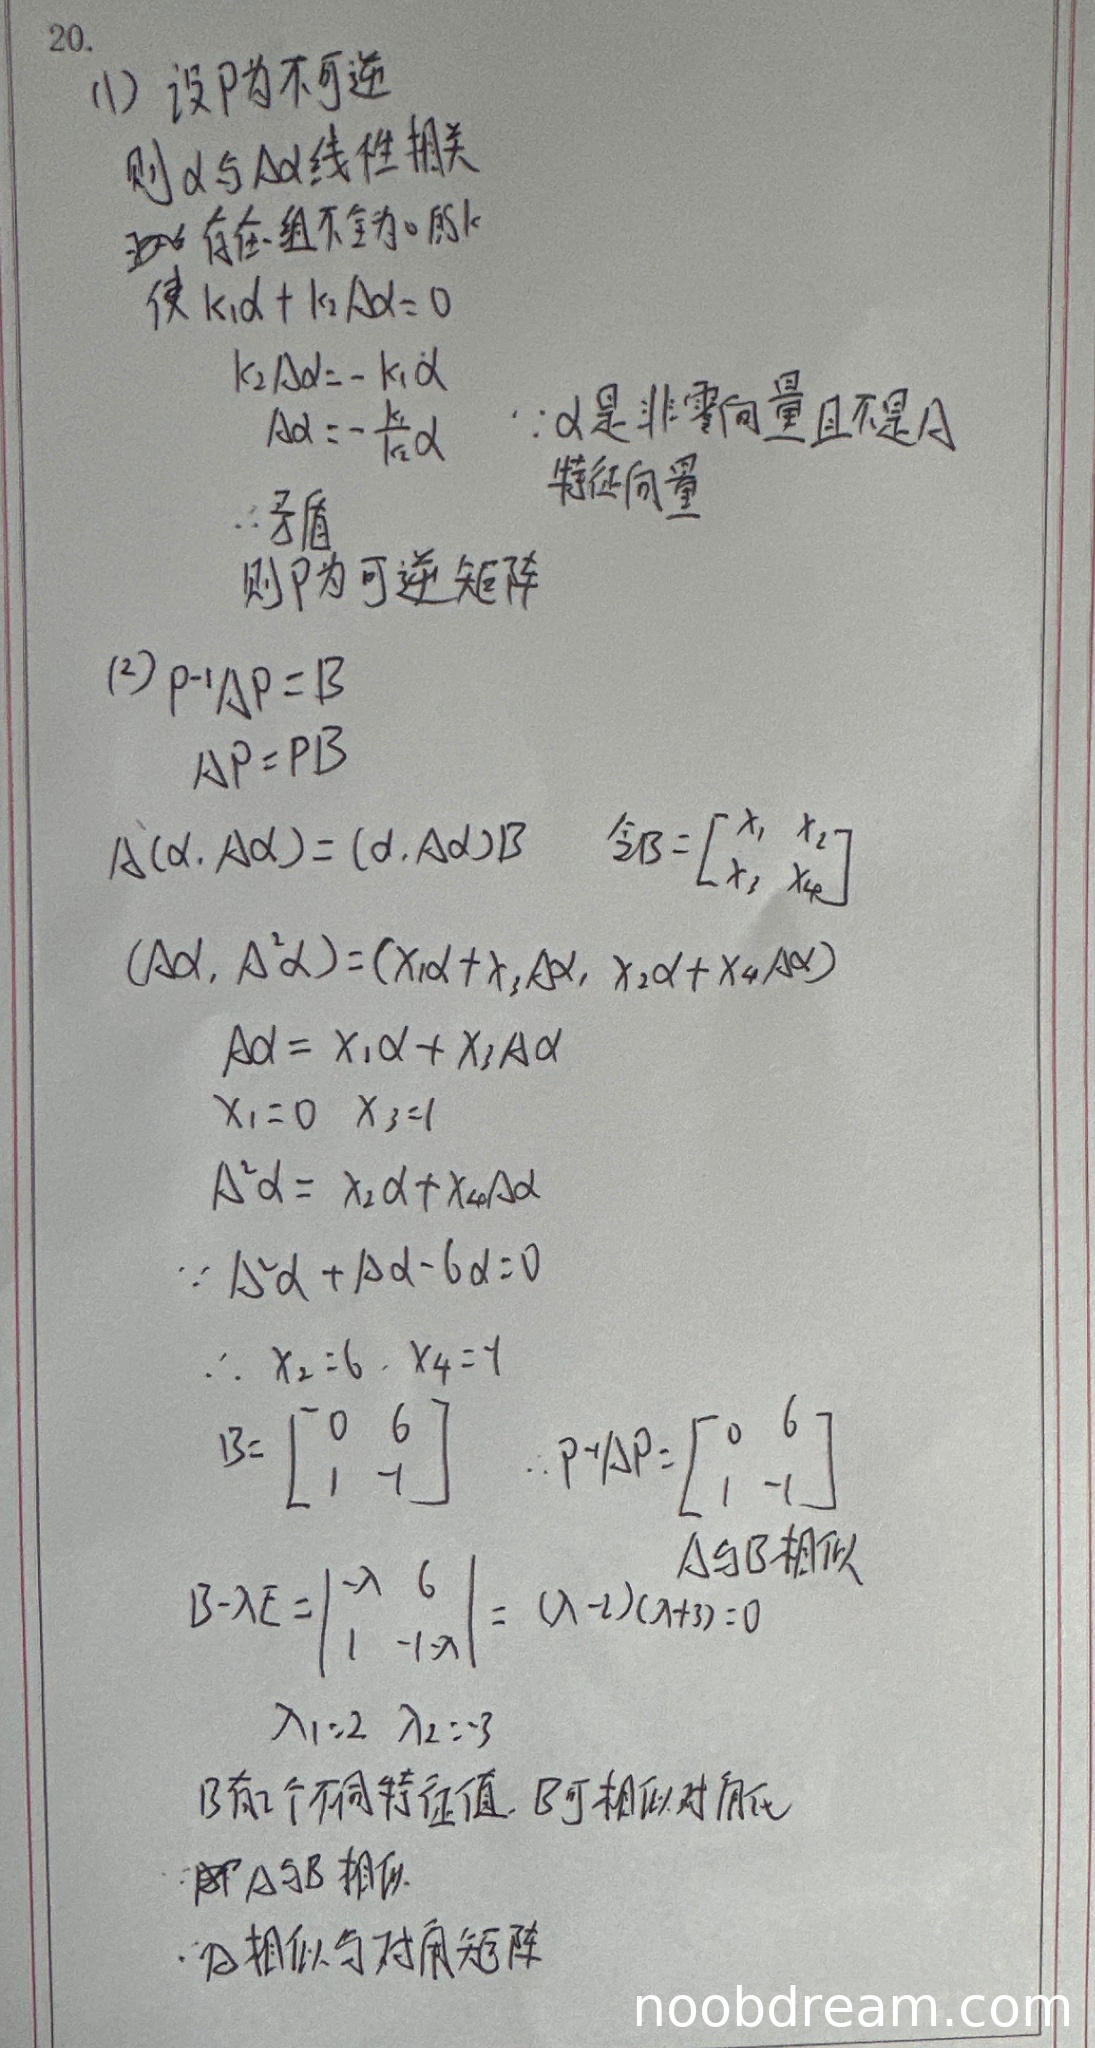 20.
(1) 设P为不可逆
则α与Aα线性相关
存在一组不全为0的k
使 k₁α + k₂Aα = 0
k₂Aα = - k₁α
Aα = - k₁/k₂ α
∵α是非零向量且不是A
特征向量
∴矛盾
则P为可逆矩阵
(2) P⁻¹AP = B
AP = PB
A(α, Aα) = (α, Aα)B 令B = [x₁ x₂
x₃ x₄]
(Aα, A²α) = (x₁α + x₃Aα, x₂α + x₄Aα)
Aα = x₁α + x₃Aα
x₁=0 x₃=1
A²α = x₂α + x₄Aα
∵ A²α + Aα - 6α = 0
∴ x₂=6, x₄=-1
B = [0 6
1 -1] ∴P⁻¹AP = [0 6
1 -1]
A与B相似
B-λE = |-λ 6
1 -1-λ| = (λ-2)(λ+3)=0
λ₁=2 λ₂=-3
B有2个不同特征值, B可相似对角化
∵ A与B相似
∴A相似与对角矩阵
noobdream.com